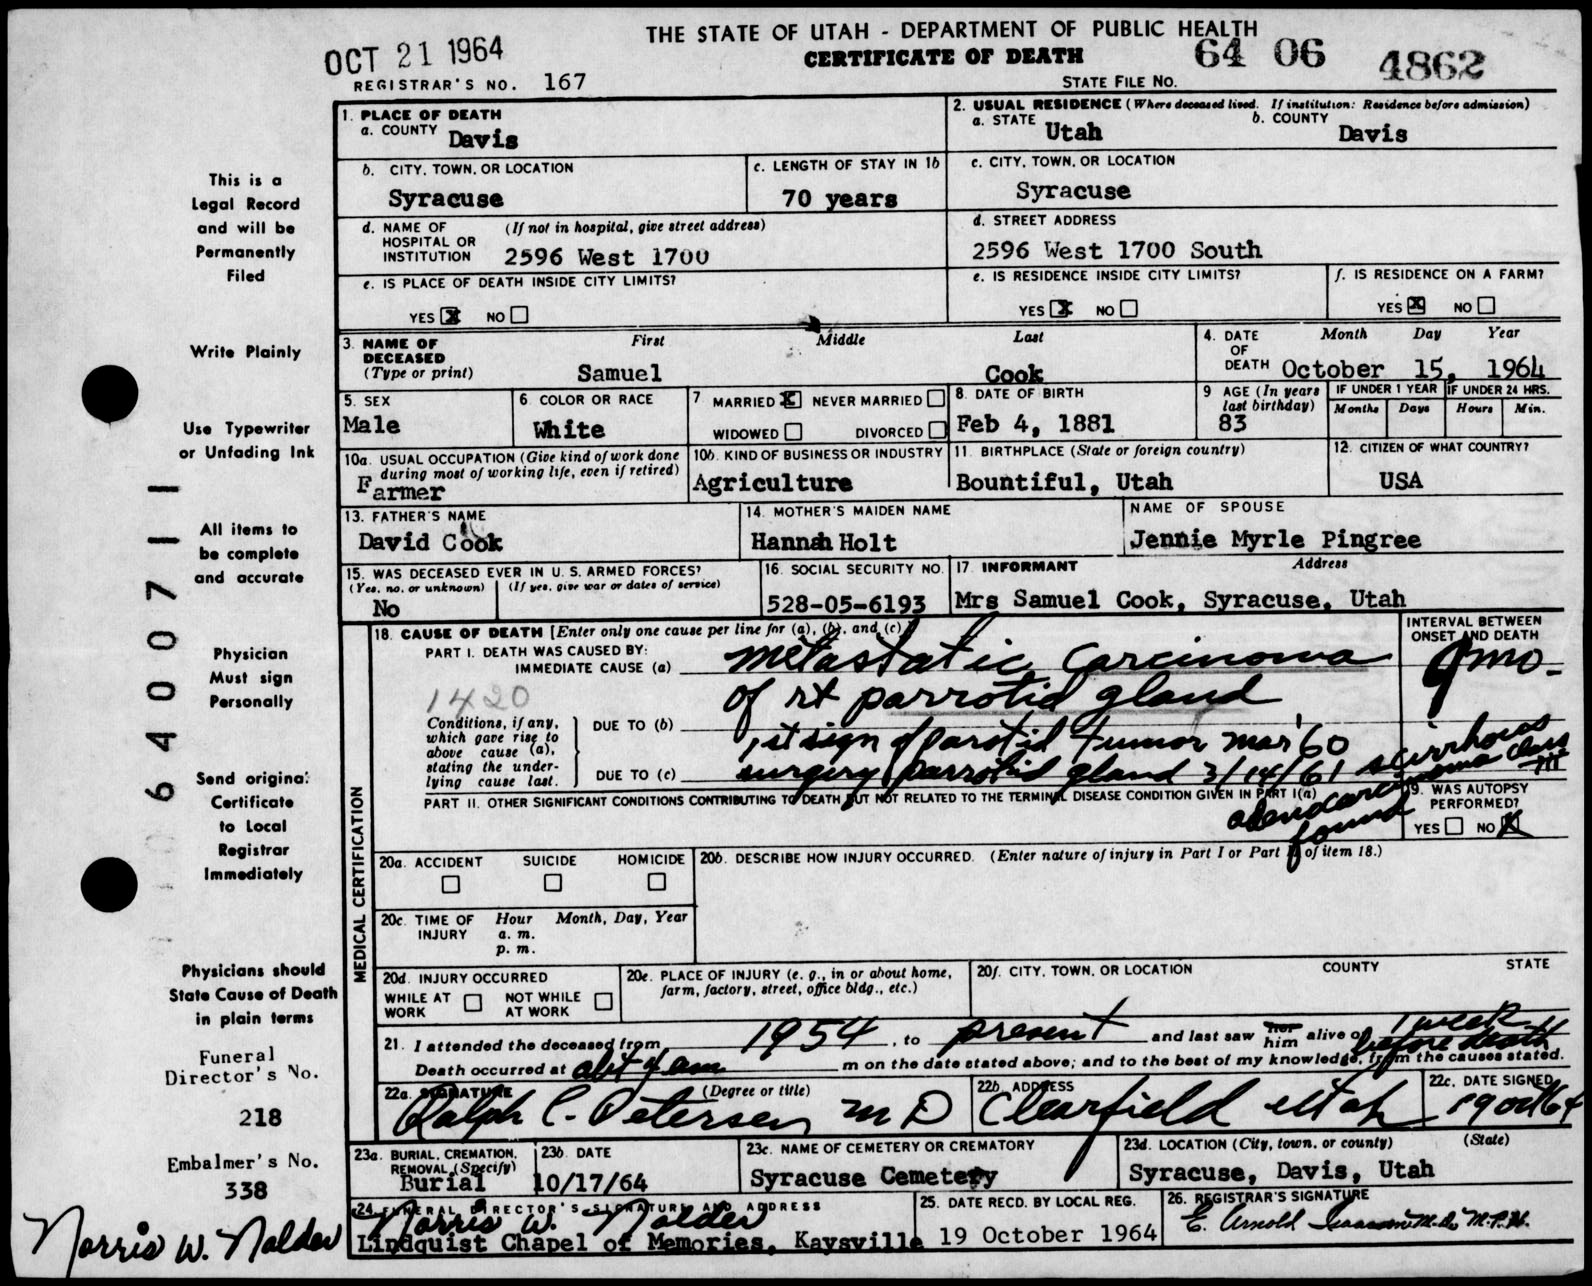 THE STATE OF UTAH - DEPARTMENT OF PUBLIC HEALTH
OCT 21 1964
CERTIFICATE OF DEATH
64 06 4862
REGISTRAR'S NO. 167
STATE FILE NO.
This is a
Legal Record
and will be
Permanently
Filed
Write Plainly
Use Typewriter
or Unfading Ink
All items to
be complete
and accurate
Physician
Must sign
Personally
Send original
Certificate
to Local
Registrar
Immediately
Physicians should
State Cause of Death
in plain terms
Funeral
Director's No.
218
Embalmer's No.
338
Norris W. Nalder
6400711
1. PLACE OF DEATH
a. COUNTY Davis
2. USUAL RESIDENCE (Where deceased lived. If institution: Residence before admission)
a. STATE Utah b. COUNTY Davis
b. CITY, TOWN, OR LOCATION
Syracuse
c. LENGTH OF STAY IN 1b
70 years
c. CITY, TOWN, OR LOCATION
Syracuse
d. NAME OF HOSPITAL OR INSTITUTION (If not in hospital, give street address)
2596 West 1700
d. STREET ADDRESS
2596 West 1700 South
e. IS PLACE OF DEATH INSIDE CITY LIMITS?
YES X NO
e. IS RESIDENCE INSIDE CITY LIMITS?
YES X NO
f. IS RESIDENCE ON A FARM?
YES X NO
3. NAME OF DECEASED (Type or print)
First Middle Last
Samuel Cook
4. DATE OF DEATH Month Day Year
October 15, 1964
5. SEX
Male
6. COLOR OR RACE
White
7 MARRIED X NEVER MARRIED
WIDOWED DIVORCED
8. DATE OF BIRTH
Feb 4, 1881
9 AGE (In years last birthday)
83
IF UNDER 1 YEAR IF UNDER 24 HRS.
Months Days Hours Min.
10a. USUAL OCCUPATION (Give kind of work done during most of working life, even if retired)
Farmer
10b. KIND OF BUSINESS OR INDUSTRY
Agriculture
11. BIRTHPLACE (State or foreign country)
Bountiful, Utah
12. CITIZEN OF WHAT COUNTRY?
USA
13. FATHER'S NAME
David Cook
14. MOTHER'S MAIDEN NAME
Hannah Holt
NAME OF SPOUSE
Jennie Myrle Pingree
15. WAS DECEASED EVER IN U. S. ARMED FORCES?
(Yes, no, or unknown) (If yes, give war or dates of service)
No
16. SOCIAL SECURITY NO.
528-05-6193
17. INFORMANT Address
Mrs Samuel Cook, Syracuse, Utah
MEDICAL CERTIFICATION
18. CAUSE OF DEATH [Enter only one cause per line for (a), (b), and (c).]
INTERVAL BETWEEN
ONSET AND DEATH
PART I. DEATH WAS CAUSED BY:
IMMEDIATE CAUSE (a) metastatic carcinoma
9 mo-
1420
of rt parrotid gland
Conditions, if any, which gave rise to above cause (a), stating the underlying cause last.
DUE TO (b) 1st sign of parotid tumor mar '60
DUE TO (c) surgery parrotid gland 3/14/61 scirrhous
adenocarcinoma class III
found
PART II. OTHER SIGNIFICANT CONDITIONS CONTRIBUTING TO DEATH BUT NOT RELATED TO THE TERMINAL DISEASE CONDITION GIVEN IN PART I(a)
19. WAS AUTOPSY
PERFORMED?
YES NO X
20a. ACCIDENT SUICIDE HOMICIDE
20b. DESCRIBE HOW INJURY OCCURRED. (Enter nature of injury in Part I or Part II of item 18.)
20c. TIME OF INJURY Hour Month, Day, Year
a. m.
p. m.
20d. INJURY OCCURRED
WHILE AT WORK NOT WHILE AT WORK
20e. PLACE OF INJURY (e. g., in or about home, farm, factory, street, office bldg., etc.)
20f. CITY, TOWN, OR LOCATION COUNTY STATE
21. I attended the deceased from 1954, to present and last saw her him alive on 1 week before death
Death occurred at abt 4 am m on the date stated above; and to the best of my knowledge, from the causes stated.
22a. SIGNATURE (Degree or title)
Ralph C. Petersen M D
22b. ADDRESS
Clearfield Utah
22c. DATE SIGNED
19 Oct 64
23a. BURIAL, CREMATION, REMOVAL (Specify)
Burial
23b. DATE
10/17/64
23c. NAME OF CEMETERY OR CREMATORY
Syracuse Cemetery
23d. LOCATION (City, town, or county) (State)
Syracuse, Davis, Utah
24. FUNERAL DIRECTOR'S SIGNATURE AND ADDRESS
Norris W. Nalder
Lindquist Chapel of Memories, Kaysville
25. DATE RECD. BY LOCAL REG.
19 October 1964
26. REGISTRAR'S SIGNATURE
E. Arnold Isaacson M.D., M.P.H.